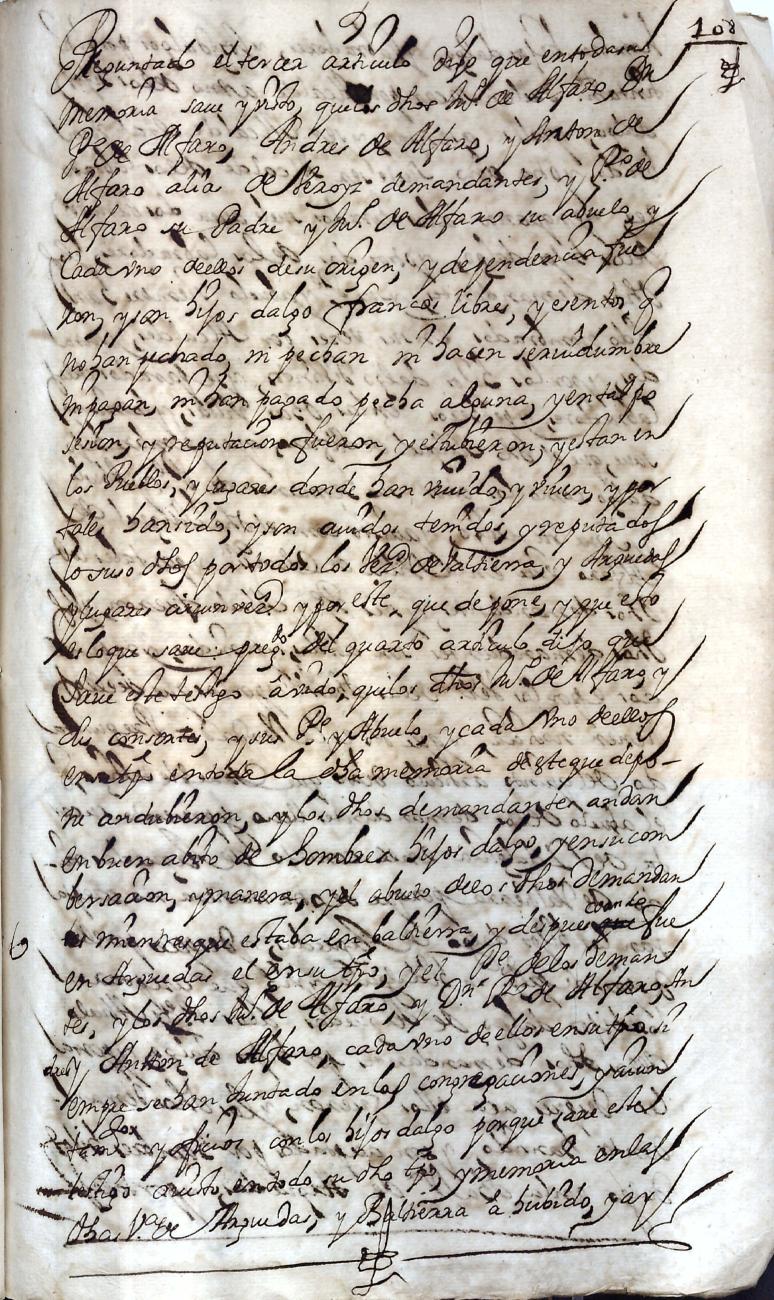 108
Preguntado el tercer articulo dijo que en toda su
memoria save y visto, que los dhos Ml. de Alfaro, Dn
Pe de Alfaro, Andres de Alfaro, y Anton de
Alfaro alias de demandantes, y Po. de
Alfaro su Padre y Ml. de Alfaro su abuelo, y
Cada vno dellos de su origen, y dependencia fue
ron, y son hijos dalgo francos libres, y esentos q
no han pechado, ni pechan ni hacen servidumbre
ni pagan, ni han pagado pecha alguna, y en tal po
sesion, y reputacion fueron, y estubieron, y estan en
los Pueblos, y lugares donde han vivido, y viven, y por
tales han sido, y son avidos tenidos, y reputados
lo suso dhos por todos los Vezs. de Valtierra, y Arguedas
y lugares circunvezs y por este, que depone, y que esto
es lo que save: pregdo. del quarto articulo dijo que
save este testigo a vido, qui los dhos Ml. de Alfaro, y
sus consortes, y su Pe. y Abuelo, y cada vno de ellos
en su tpo en toda la dha memoria deste que depo-
ne andubieron, y los dhos demandantes andan
en buen abito de hombres hijos dalgo, y en su com
bersacion, y manera, y el abuelo de los dhos demandan
tes mientres que estaba en baltierra, y despues cuando fue
en Arguedas el en su tpo, y el Pe de los deman
tes, y los dhos Ml. de Alfaro, y Dn. Pe de Alfaro, An
dres y Anton de Alfaro, cada vno de ellos en su tpo si
empre se han Juntado en las congregaciones, y aiun
tam y oficios con los hijos dalgo porque save este
testigo a visto en todo su dho tpo, y memoria en las
dhas Vas. de Arguedas, y Baltierra a hubido, y ay